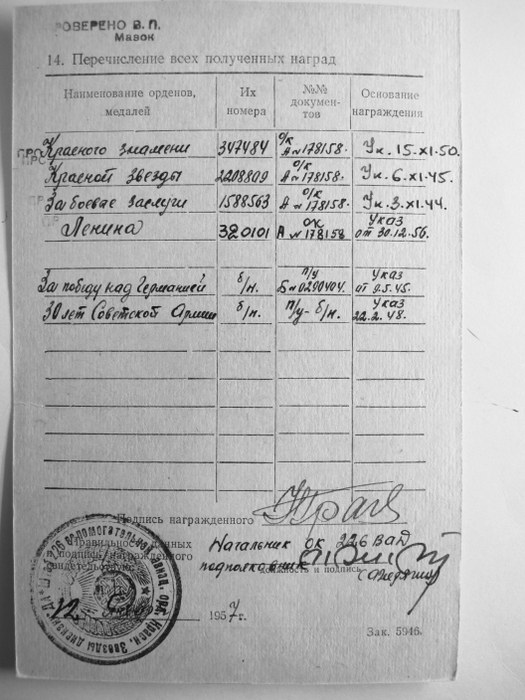 РОВЕРЕНО В. П.
Мазок
14. Перечисление всех полученных наград
Наименование орденов, медалей
Их номера
№№ документов
Основание награждения
Красного знамени 347484 о/к А № 178158. Ук. 15.XI.50.
Красной звезды 2208809 о/к А № 178158. Ук. 6.XI.45.
За боевые заслуги 1588563 о/к А № 178158. Ук. 3.XI.44.
Ленина 320101 ок А № 178158 Указ от 30.12.56.
За победу над Германией б/н. п/у Б № 0290404. Указ от 9.5.45.
30 лет Советской Армии б/н. п/у- б/н. Указ 22.2.48.
Подпись награжденного
Правильность данных
и подписи награжденного
свидетельствую:
Начальник ОК 226 ВАД
подполковник
должность и подпись
12
1957 г.
Зак. 5946.